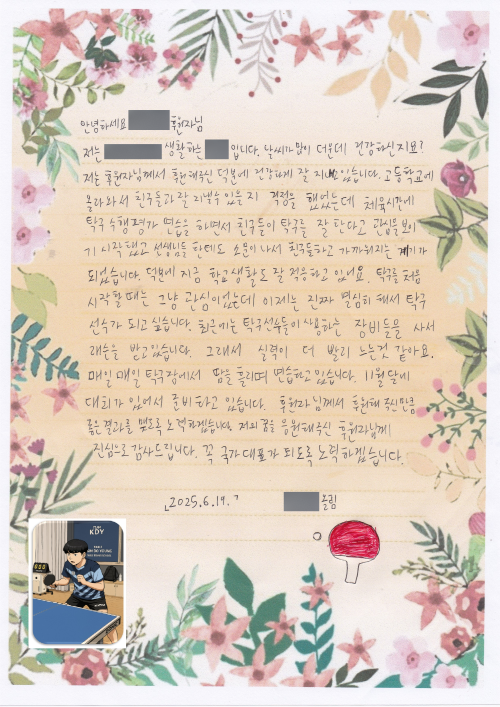 안녕하세요 후원자님
저는 생활하는 입니다. 날씨가 많이 더운데 건강하신지요?
저는 후원자님께서 후원해주신 덕분에 건강하게 잘 지내고 있습니다. 고등학교에
올라와서 친구들과 잘 지낼수 있을지 걱정을 했었는데 체육시간에
탁구 수행평가 연습을 하면서 친구들이 탁구를 잘 한다고 관심을 보이
기 시작했고 선생님들 한테도 소문이 나서 친구들하고 가까워지는 계기가
되었습니다. 덕분에 지금 학교생활도 잘 적응하고 있어요. 탁구를 처음
시작할때는 그냥 관심이었는데 이제는 진짜 열심히 해서 탁구
선수가 되고 싶습니다. 최근에는 탁구선수들이 사용하는 장비들을 사서
래슨을 받고있습니다. 그래서 실력이 더 빨리 느는것 같아요.
매일 매일 탁구장에서 땀을 흘리며 연습하고 있습니다. 11월달에
대회가 있어서 준비하고 있습니다. 후원자님께서 후원해 주신만큼
좋은결과를 맺도록 노력하겠습니다. 저의 꿈을 응원해주신 후원자님께
진심으로 감사드립니다. 꼭 국가대표가 되도록 노력하겠습니다.
「2025.6.19.」 올림
KDY